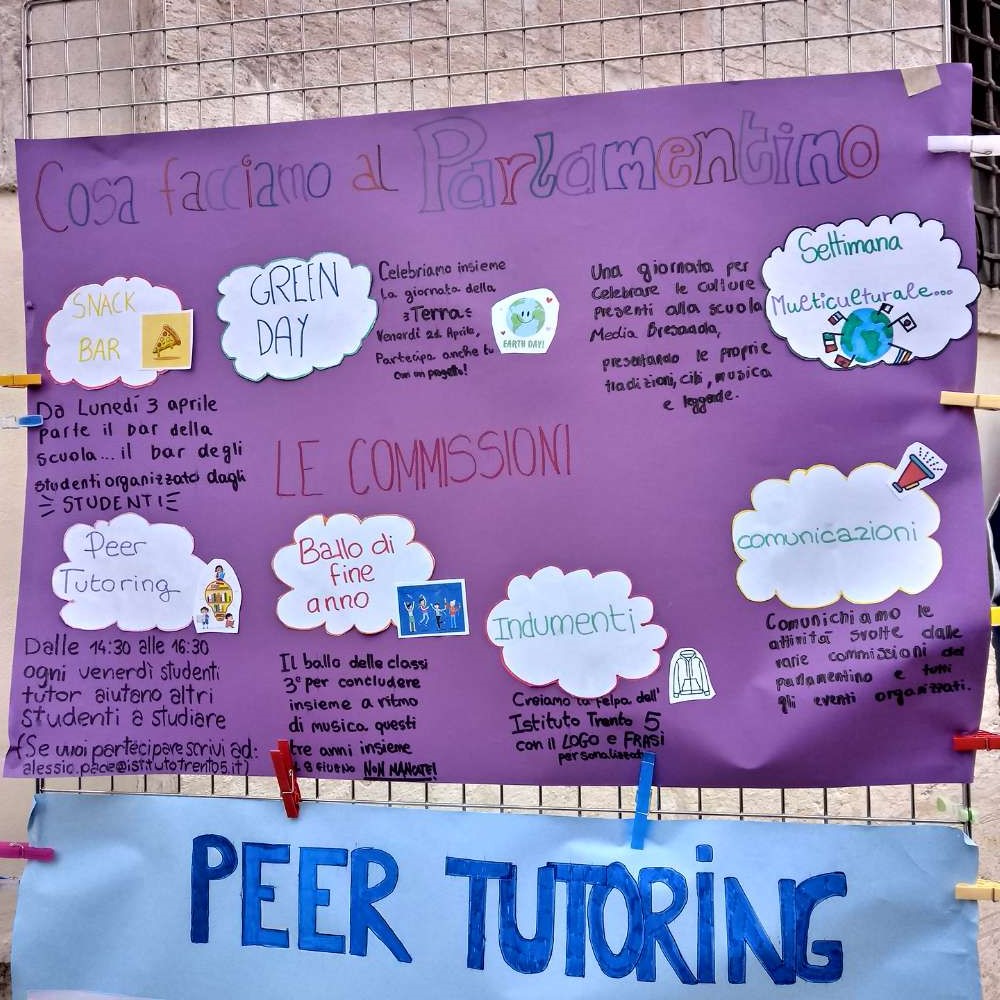 Cosa facciamo al Parlamentino
SNACK
BAR
Da Lunedí 3 aprile
parte il bar della
scuola... il bar degli
studenti organizzato dagli
STUDENTI
GREEN
DAY
Celebriamo insieme
la giornata della
Terra
Venerdí 21 Aprile,
Partecipa anche tu
con un progetto!
EARTH DAY!
Una giornata per
Celebrare le culture
presenti alla scuola
Media Bresanda,
presentando le proprie
tradizioni, cibi, musica
e leggende.
Settimana
Multiculturale...
LE COMMISSIONI
Peer
Tutoring
Dalle 14:30 alle 16:30
ogni venerdì studenti
tutor aiutano altri
studenti a studiare
(Se vuoi partecipare scrivi ad:
alessio.pace@istitutotrento5.it)
Ballo di
fine
anno
Il ballo delle classi
3e per concludere
insieme a ritmo
di musica questi
tre anni insieme
8 GIUGNO NON MANCATE!
Indumenti
Creiamo la felpa dell'
Istituto Trento 5
con il LOGO e FRASI
personalizzate
comunicazioni
Comunichiamo le
attivitá svolte dalle
varie commissioni del
parlamentino e tutti
gli eventi organizzati.
PEER TUTORING